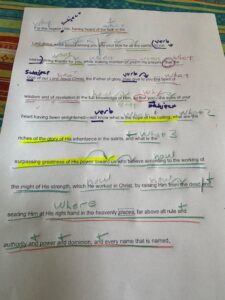 what subject
For this reason I too, having heard of the faith in the
Lord Jesus which exists among you and your love for all the saints, do not
verb
cease giving thanks for you, while making mention of you in my prayers; that the
subject verb
God of our Lord Jesus Christ, the Father of glory, may give to you the Spirit of
wisdom and of revelation in the full knowledge of Him, so that you, the eyes of your
subject
heart having been enlightened, will know what is the hope of His calling, what are the
what 3
riches of the glory of His inheritance in the saints, and what is the
surpassing greatness of His power toward us who believe according to the working of
how
the might of His strength, which He worked in Christ, by raising Him from the dead and
where
seating Him at His right hand in the heavenly places, far above all rule and
authority and power and dominion, and every name that is named,